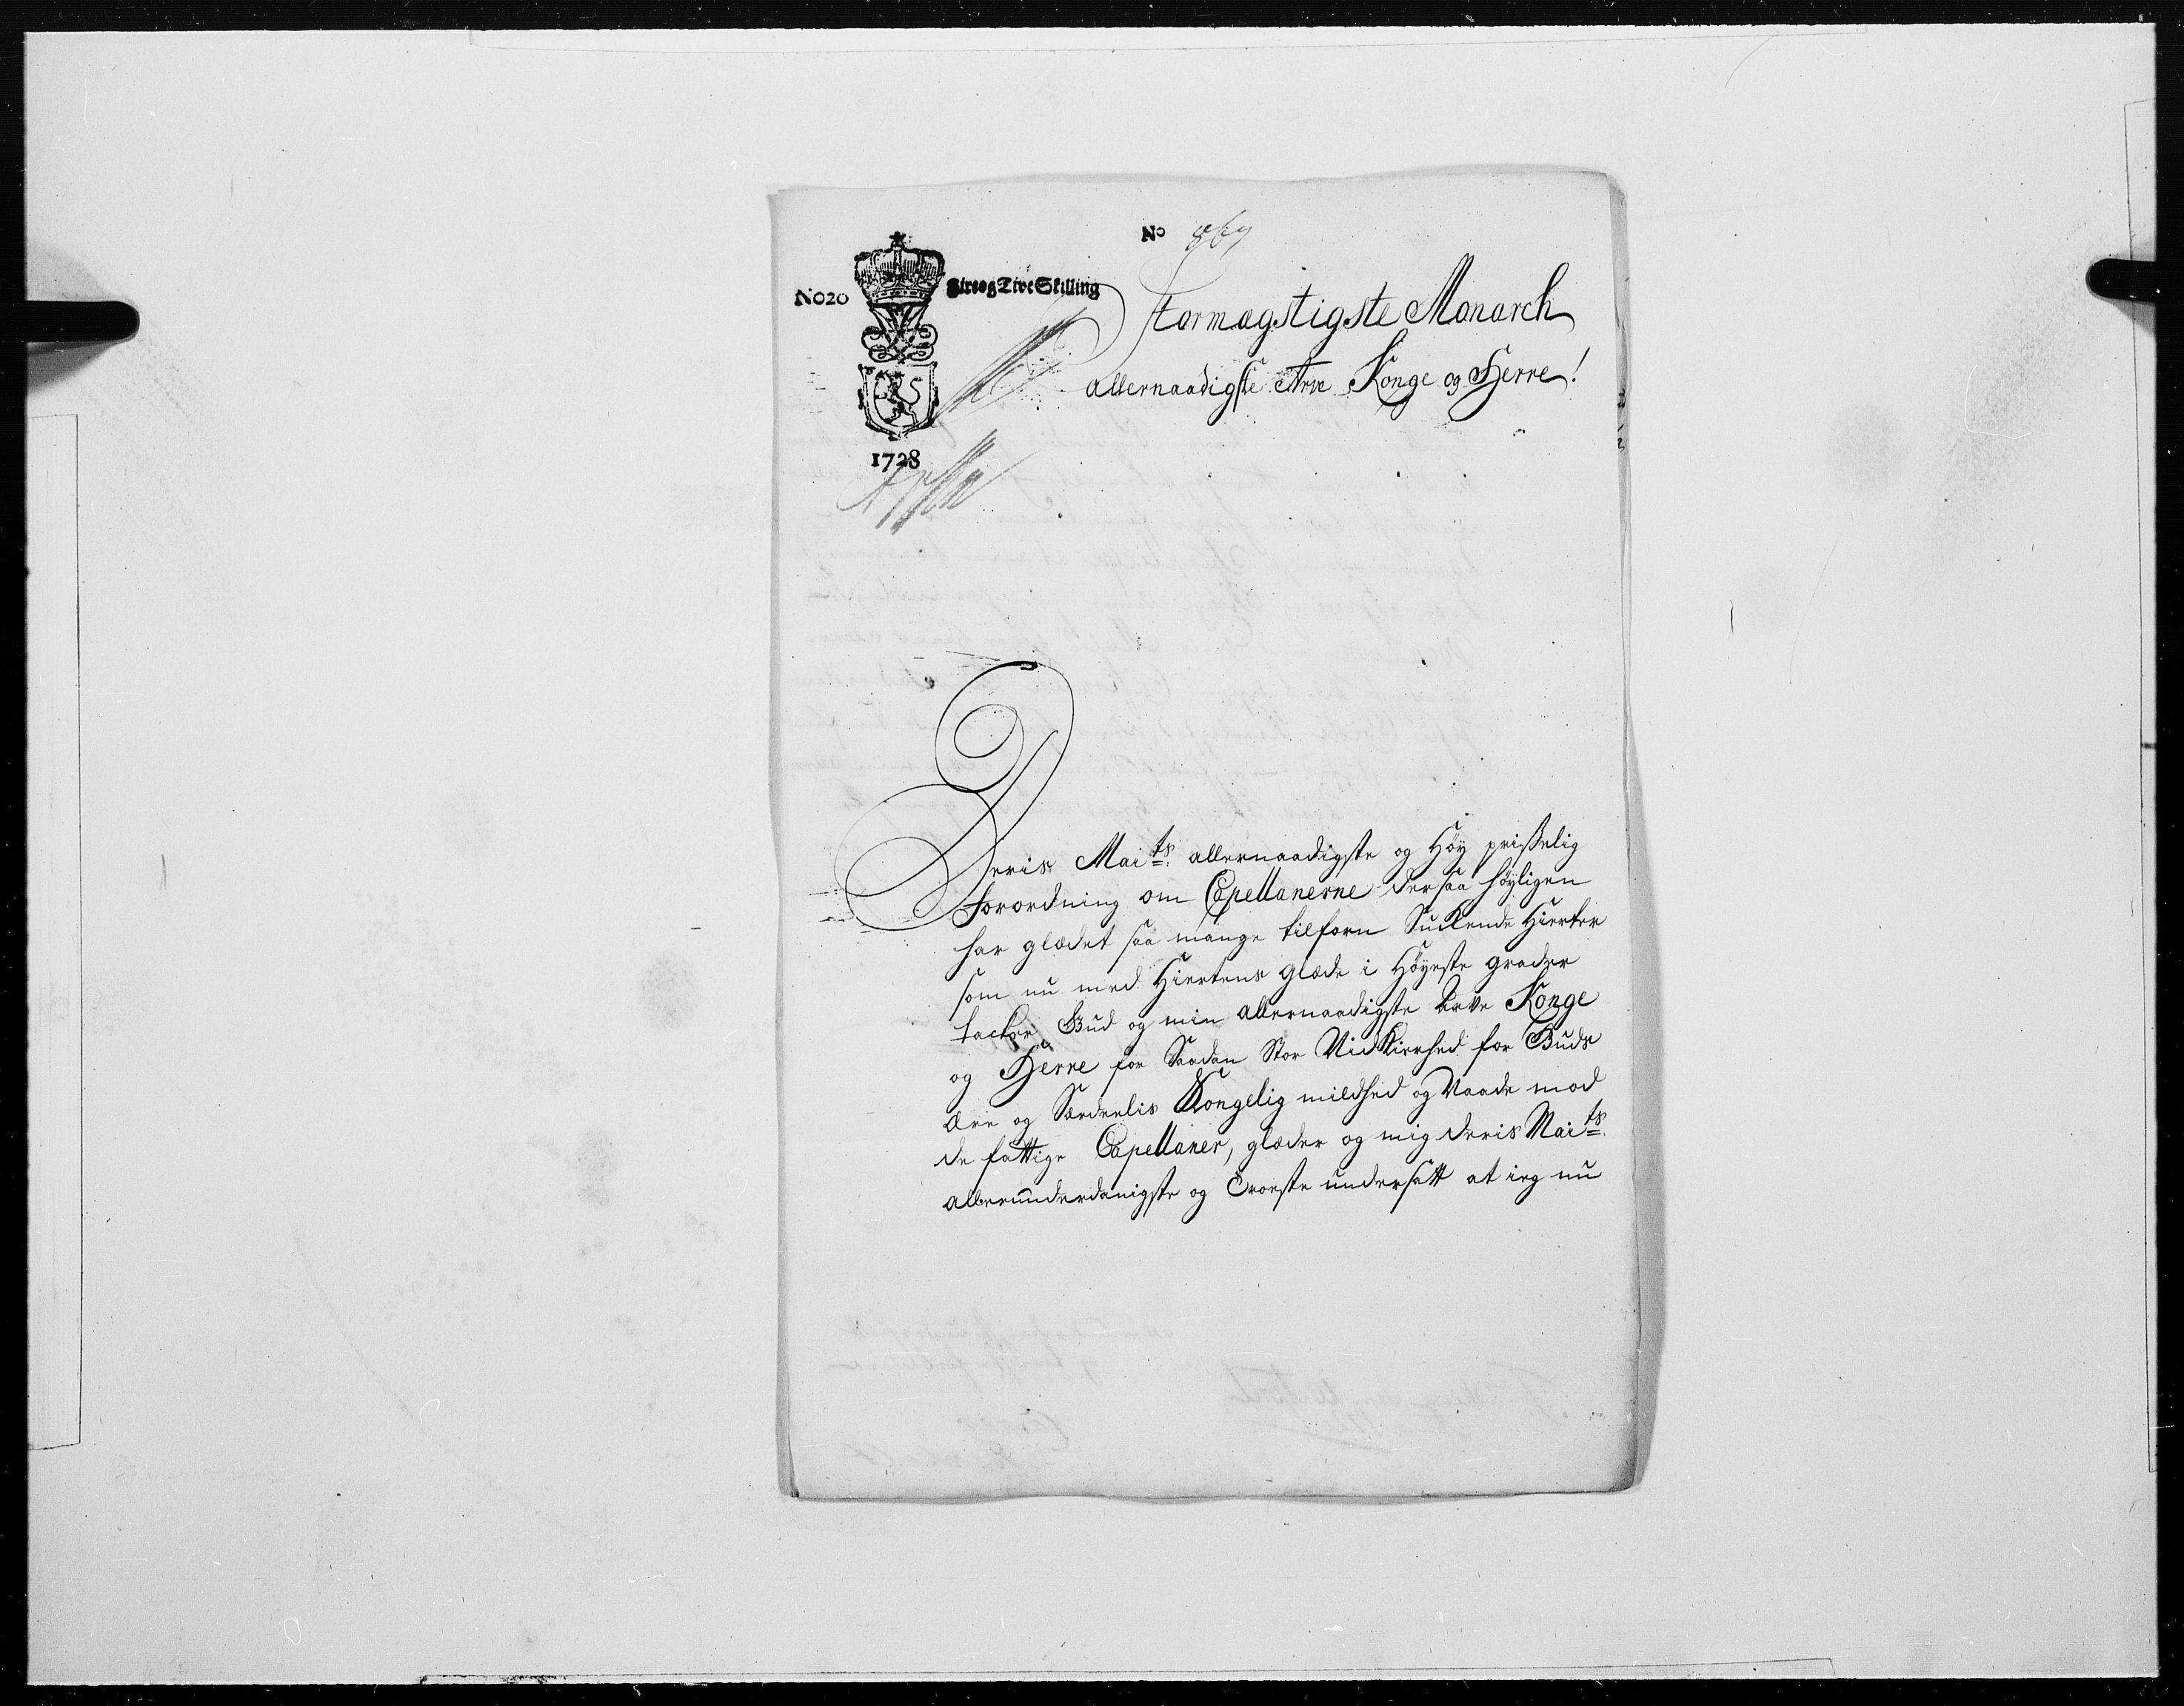 No 869
No20
Fire og Tive Skilling
Stormægstigste Monarch
allernaadigste Arve Konge og Herre!
1728
Deris Maits. allernaadigste og Höy prisselig
Forordning om Capellanerne der saa höyligen
har glædet saa mange tilforn Suckende Hierter
som nu med Hiertens glæde i Höyeste grader
tacker Gud og min allernaadigste Arve Konge
og Herre for Saadan Stor Nidkierhed for Guds
Ære og Særdeelis Kongelig mildhed og Naade mod
de fattige Capellaner, glæder og mig deris Maits.
allerunderdanigste og Troeste undersatt at ieg nu